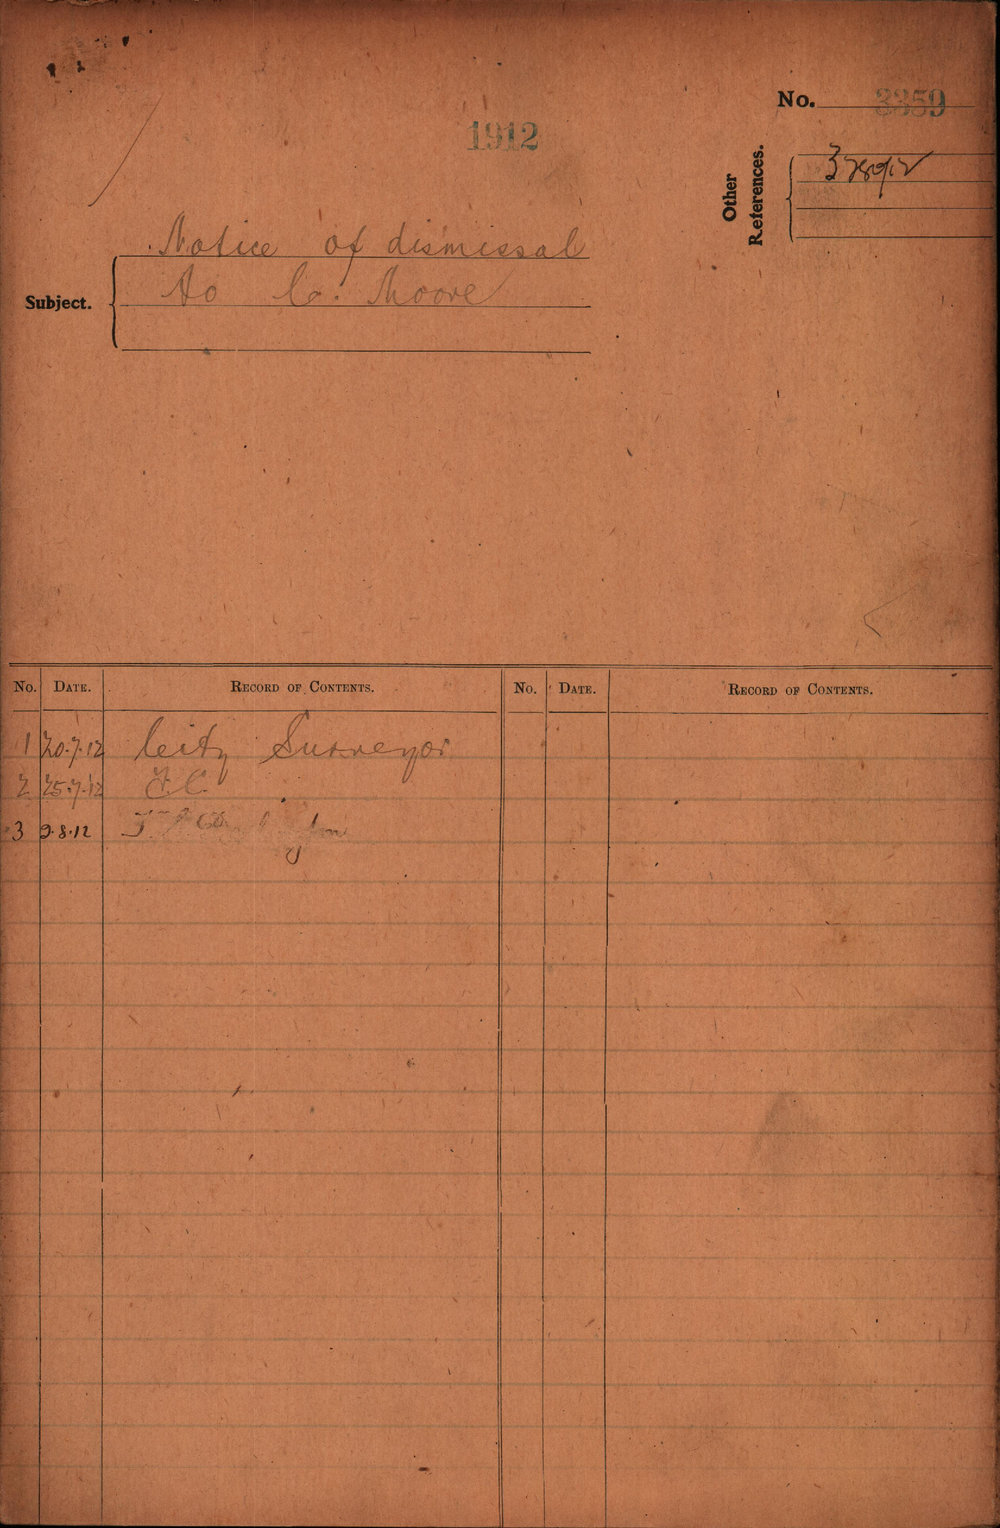 No. 3359
1912
Other References.
Notice of dismissal
Subject.
to C. Moore
No. Date. Record of Contents. No. Date. Record of Contents.
1 20.7.12 City Surveyor
2 25.7.12 F.C.
3 9.8.12